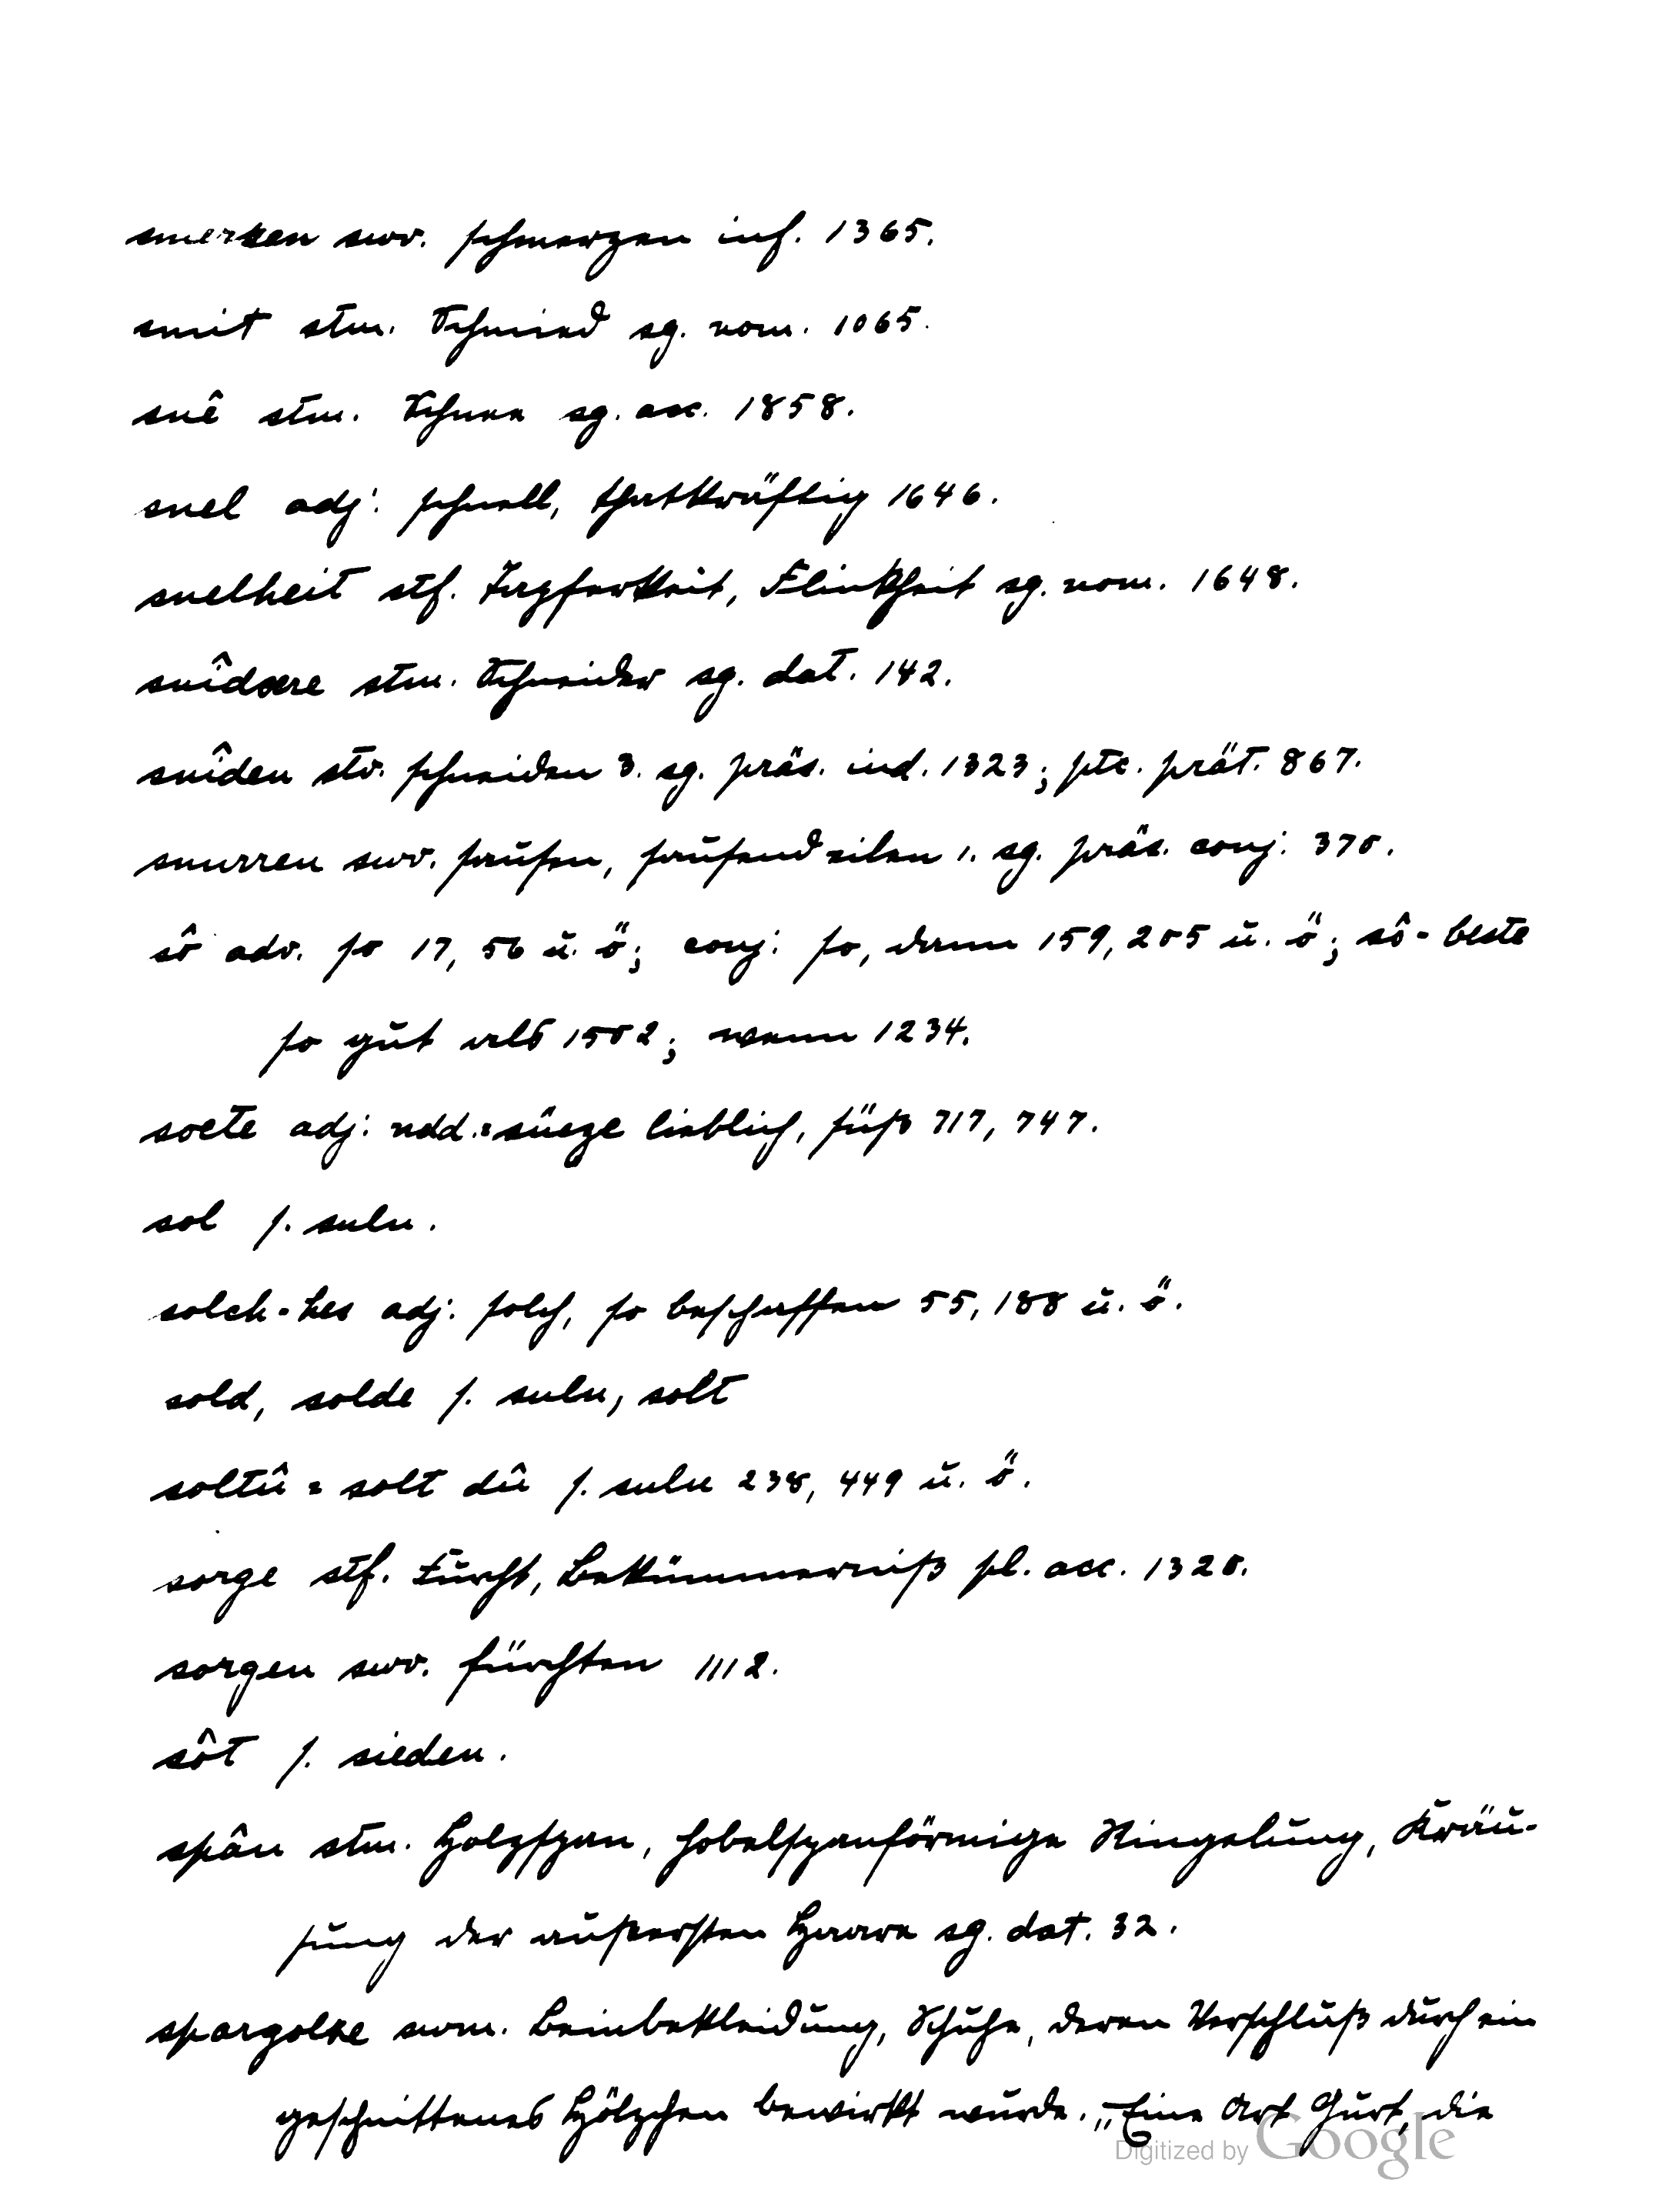 smerzen swv. schmerzen inf. 1365.
smit stm. Schmied sg. nom. 1065.
snê stm. Schnee sg. acc. 1858.
snel adj. schnell, thatkräftig 1646.
snelheit stf. Tapferkeit, Flinkheit sg. nom. 1648.
snîdære stm. Schneider sg. dat. 142.
snîden stv. schneiden 3. sg. präs. ind. 1323; ptc. prät. 867.
snurren swv. sausen, sausend eilen 1. sg. präs. conj. 370.
sô adv. so 17, 56 u. ö; conj. so, dann 159, 205 u. ö; sô-beste
so gut als 1502; wenn 1234.
soete adj. ndd. = süeze lieblich, süß 717, 747.
sol s. suln.
solch-hes adj. solch, so beschaffen 55, 188 u. ö.
sold, solde s. suln, solt
soltû = solt dû s. suln 238, 449 u. ö.
sorge stf. Furcht, Bekümmerniß pl. acc. 1320.
sorgen swv. fürchten 1112.
sôt s. sieden.
spân stm. Holzspan, hobelspanförmige Ringelung, Kräu-
sung der äußersten Haare sg. dat. 32.
spargolze swm. Beinbekleidung, Schuhe, deren Verschluß durch ein
geschnittenes Hölzchen bewirkt wurde. „Eine Art Gurt, die
Digitized by Google